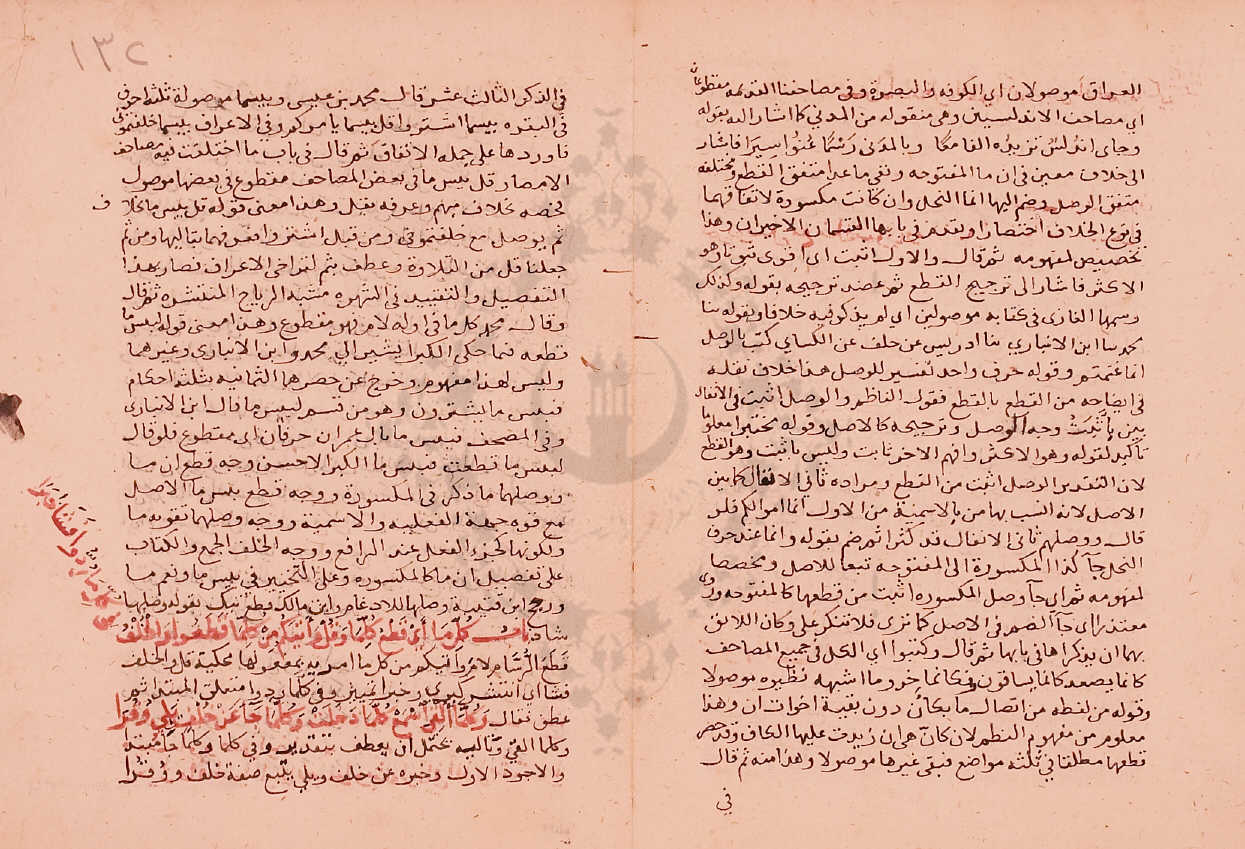 العراق موصولان اي الكوفه والبصرة وفي مصاحفنا القديمه مقطوعان
اي مصاحف الاندلسيين وهي منقوله من المدني كما اشار اليه بقوله
وجاي اندلس تزيده الفا معًا وبالمدني رسمًا عنوا سيرا فاشار
الى خلاف معين في ان ما المفتوحه وتقي ما عدا متفق القطع ومختلفه
متفق الوصل وضم اليها انما النحل وان كانت مكسورة لاتفاقهما
في نوع الخلاف اختصارا وتقدم في بابها القسمان الاخيران وهذا
تخصيص لمفهومه ثم قال والاول اثبت اي اقوى ثبوتا وهو
الاكثر فاشار الى ترجيح القطع ثم عضد ترجيحه بقوله وكذلك
رسمها الغازى في كتابه موصولين اي لم يذكر فيه خلافا وبقوله ثنا
محمد ثنا ابن الانباري ثنا ادريس عن خلف عن الكساي كتب بالوصل
انما غنمتم وقوله حرف واحد تفسير للوصل هذا خلاف نقله
في ايضاحه من القطع بالقطع فقول الناظم والوصل اثبت في الانفال
بين باثبت وجه الوصل وترجيحه كالاصل وقوله مختبرا معلوما
تأكيد لقوله وهو الاكثر وافهم الاخر ثابت وليس باثبت وهو القطع
لان التقدير الوصل اثبت من القطع ومراده ثاني الانفال كما بين
الاصل لانه انسب بها من بالاسمية من الاول انما اموالكم فلو
قال ووصلهم ثاني الانفال قد كثرا ثم ضم بقوله وانما عند حرف
النحل جآ كذا المكسورة الى المفتوحه تبعا للاصل ومخصصا
لمفهومه ثم اي جآ وصل المكسوره اثبت من قطعها كالمفتوحه
معتذرا اي جآ الضم في الاصل كما ترى فلا تنكر علي وكان اللائق
بهما ان يذكرا هافي بابها ثم قال وكتبوا اي الكل في جميع المصاحف
كانما يصعد كانما يساقون وفكانما خر وما اشبهه نظيره موصولا
وقوله من لفظه من اتصال ما بكان دون بقية اخوات ان وهذا
معلوم من مفهوم النظم لان كان هي ان زيدت عليها الكاف وقد حصر
قطعها مطلقا في ثلثه مواضع فبقى غيرها موصولا وهذا منه ثم قال
في
١٣٢
في الذكر الثالث عشر قال محمد بن عيسى وبيسما موصولة ثلثه احرف
في البقره بيسما اشتروا قل بيسما يامركم وفي الاعراف بيسما خلفتموني
فاوردها على جمله الاتفاق ثم قال في باب ما اختلفت فيه مصاحف
الامصار قل بيس ما في بعض المصاحف مقطوع في بعضها موصول
فخصه بخلاف مبهم وعرفه بقل وهذا معنى قوله قل بيس ما بخلا ف
ثم يوصل مع خلفتموني ومن قبل اشتروا فهما بتاليها ومن ثم
جعلنا قل من التلاوة وعطف بثم لتراخى الاعراف نصار بهذا
التفصيل والتقييد في الشهره مشبه الرياح المنتشره ثم قال
وقال محمد كل ما في اوله لام فهو مقطوع وهذا معنى قوله لبيس ما
قطعه فيما حكى الكبرا يشير الي محمد وابن الانباري وغيرهما
وليس لهذا مفهوم وخرج عن حصرهما الثمانيه بثلثه احكام
فبيس ما يشترون وهو من قسم لبيس ما قال ابن الانباري
وفي المصحف فبيس ما بال عمران حرفان اي مقطوع فلو قال
لبيس ما قطعت فبيس ما الكبرا لاحسن وجه قطع ان ما
ووصلهما ما ذكر في المكسورة ووجه قطع بيس ما الاصل
مع قوه جهة الفعليه والاسمية ووجه وصلهما تقويه ما
ولكونها كجزء الفعل عند الرافع ووجه الخلف الجمع والكتاب
على تفصيل ان ما كالمكسوره وعلى التخيير في بيس ما ونعم ما
ورجح ابن قتيبة وصلها للادغام وابن مالك قطع بقوله وصلهما
شاذ باب كل ما اي قطع كلما وقل واتيكم من كل ما قطعوا والخلف
قطع الرسام لام واتيكم من كل ما امر به بمفعولها محكية قل والخلف
فشا اي انتشر كبرى رخبر المييز وفي كلما ردوا متعلق المبتدا ثم
عطف فقال وكلما القي اسمع كلما دخلت وكلما جا عن خلف يلي وقرا
وكلما القي وتاليه يحتمل ان يعطف بتقدير وفي كلما وكلما جا مبتدا
والاجود الاول وخبره عن خلف ويلي يتبع صفة خلف ووقرا